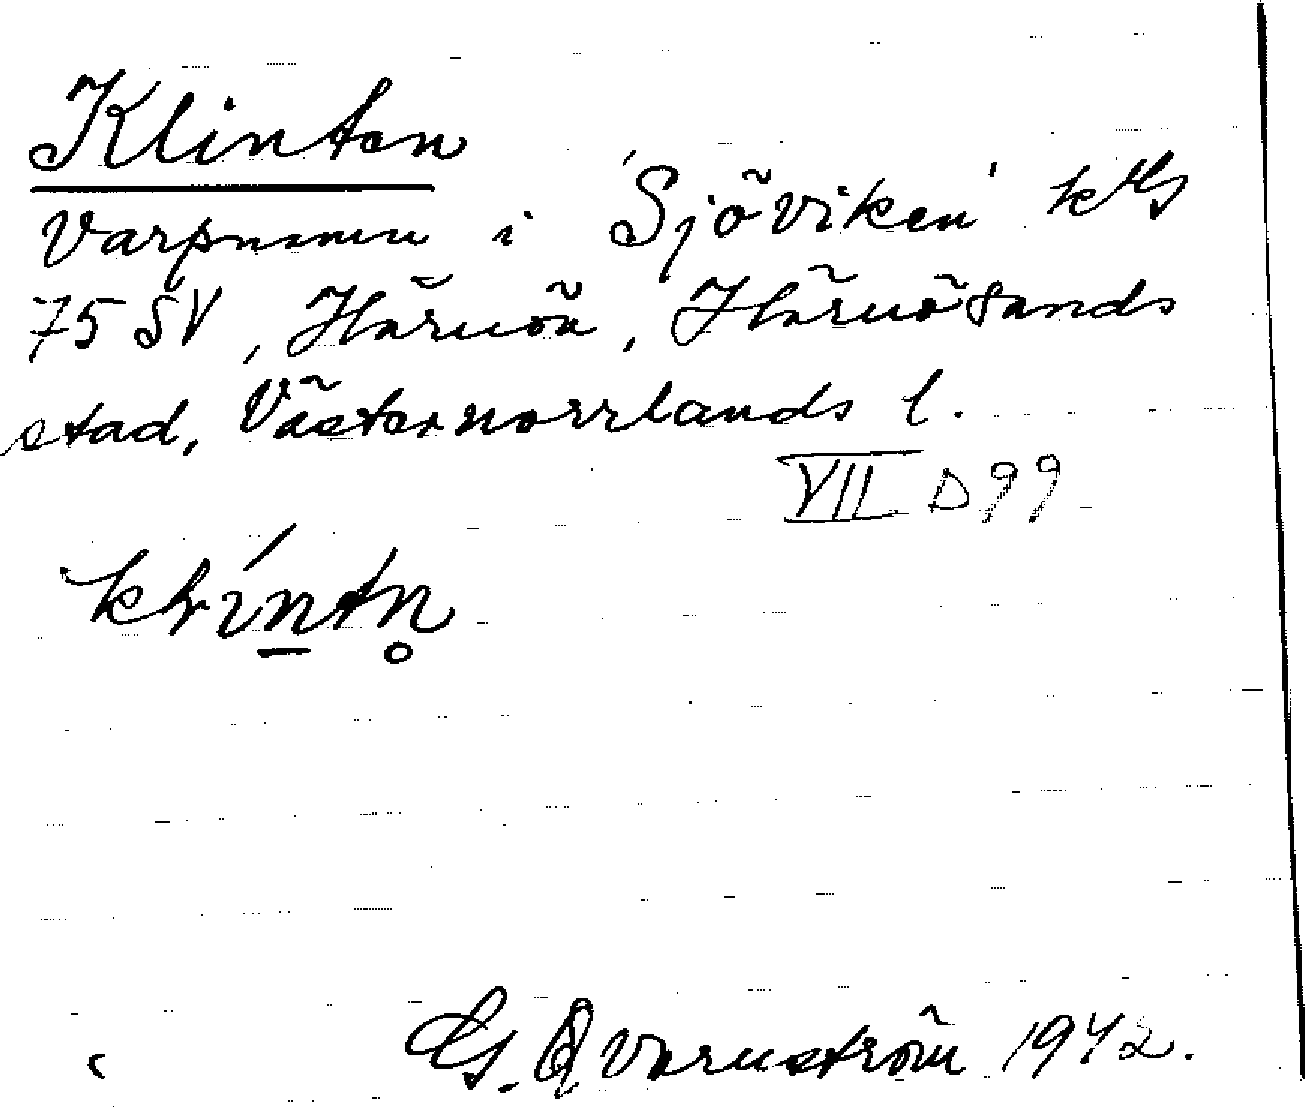 Klinten
Varpnamn i 'Sjöviken' kbl
75 SV, Härnön, Härnösands
stad, Västernorrlands l.
VII D 99
klíntn̥
G. Qvarnström 1942.